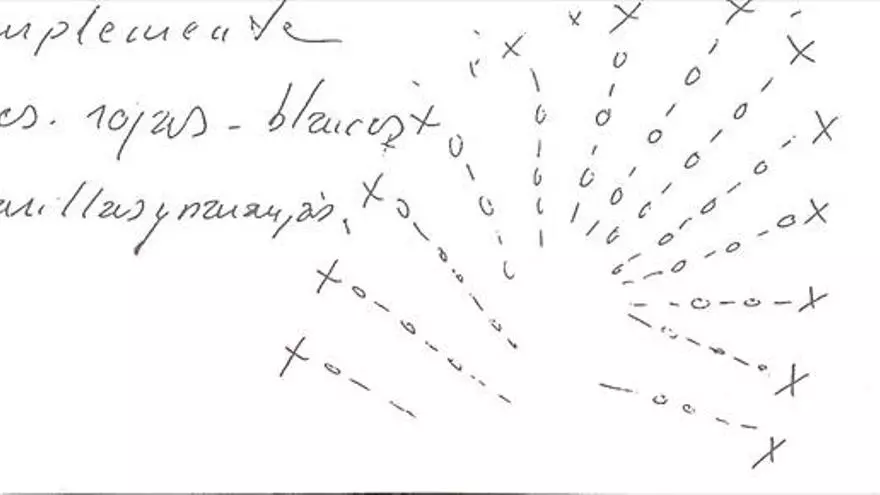 mplemente
es. rojas - blancas
arillas y naranjas.